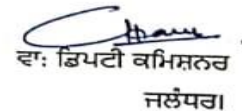 ਵਾ: ਡਿਪਟੀ ਕਮਿਸ਼ਨਰ
ਜਲੰਧਰ।